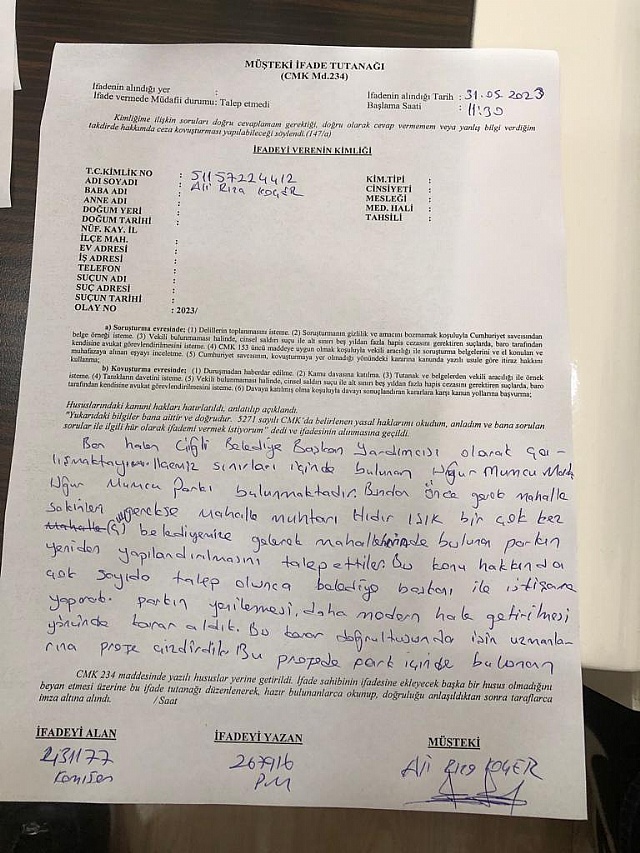 MÜŞTEKİ İFADE TUTANAĞI
(CMK Md.234)
İfadenin alındığı yer :
İfade vermede Müdafii durumu: Talep etmedi
İfadenin alındığı Tarih : 31.05.2023
Başlama Saati : 11:30
Kimliğime ilişkin soruları doğru cevaplamam gerektiği, doğru olarak cevap vermemem veya yanlış bilgi verdiğim
takdirde hakkımda ceza kovuşturması yapılabileceği söylendi.(147/a)
İFADEYİ VERENİN KİMLİĞİ
T.C.KİMLİK NO : 51157224412
ADI SOYADI : Ali Rıza KOÇER
BABA ADI :
ANNE ADI :
DOĞUM YERİ :
DOĞUM TARİHİ :
NÜF. KAY. İL
İLÇE MAH. :
EV ADRESİ :
İŞ ADRESİ :
TELEFON :
SUÇUN ADI :
SUÇ ADRESİ :
SUÇUN TARİHİ :
OLAY NO : 2023/
KİM.TİPİ :
CİNSİYETİ :
MESLEĞİ :
MED. HALİ :
TAHSİLİ :
a) Soruşturma evresinde; (1) Delillerin toplanmasını isteme. (2) Soruşturmanın gizlilik ve amacını bozmamak koşuluyla Cumhuriyet savcısından
belge örneği isteme. (3) Vekili bulunmaması halinde, cinsel saldırı suçu ile alt sınırı beş yıldan fazla hapis cezasını gerektiren suçlarda, baro tarafından
kendisine avukat görevlendirilmesini isteme. (4) CMK 153 üncü maddeye uygun olmak koşuluyla vekili aracılığı ile soruşturma belgelerini ve el konulan ve
muhafazaya alınan eşyayı inceletme. (5) Cumhuriyet savcısının, kovuşturmaya yer olmadığı yönündeki kararına kanunda yazılı usule göre itiraz hakkını
kullanma.
b) Kovuşturma evresinde; (1) Duruşmadan haberdar edilme. (2) Kamu davasına katılma. (3) Tutanak ve belgelerden vekili aracılığı ile örnek
isteme. (4) Tanıkların davetini isteme. (5) Vekili bulunmaması halinde, cinsel saldırı suçu ile alt sınırı beş yıldan fazla hapis cezasını gerektiren suçlarda, baro
tarafından kendisine avukat görevlendirilmesini isteme. (6) Davaya katılmış olma koşuluyla davayı sonuçlandıran kararlara karşı kanun yollarına başvurma;
Hususlarındaki kanuni hakları hatırlatıldı, anlatılıp açıklandı.
"Yukarıdaki bilgiler bana aittir ve doğrudur. 5271 sayılı CMK'da belirlenen yasal haklarımı okudum, anladım ve bana sorulan
sorular ile ilgili hür olarak ifademi vermek istiyorum" dedi ve ifadesinin alınmasına geçildi.
Ben halen Çiğli Belediye Başkan Yardımcısı olarak ça-
lışmaktayım. İlçemiz sınırları içinde bulunan Uğur Mumcu Mah.
Uğur Mumcu Parkı bulunmaktadır. Bundan önce gerek mahalle
sakinleri gerekse mahalle muhtarı Hıdır IŞIK bir çok kez
belediyemize gelerek mahallelerinde bulunan parkın
yeniden yapılandırılmasını talep ettiler. Bu konu hakkında
çok sayıda talep olunca belediye başkanı ile istişare
yaparak parkın yenilenmesi, daha modern hale getirilmesi
yönünde karar aldık. Bu karar doğrultusunda işin uzmanla-
rına proje çizdirdik. Bu projede park içinde bulunan
CMK 234 maddesinde yazılı hususlar yerine getirildi. İfade sahibinin ifadesine ekleyecek başka bir husus olmadığını
beyan etmesi üzerine bu ifade tutanağı düzenlenerek, hazır bulunanlarca okunup, doğruluğu anlaşıldıktan sonra taraflarca
imza altına alındı. /Saat
İFADEYİ ALAN
İFADEYİ YAZAN
MÜŞTEKİ
231177
Komiser
267916
P.M
Ali Rıza KOÇER